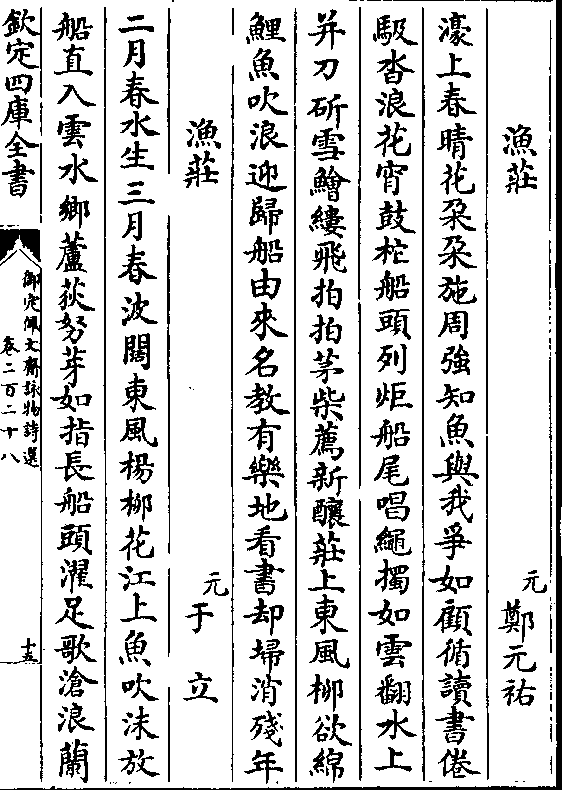 漁莊
元鄭元祐
濠上春晴花朶朶施周強知魚與我爭如顧循讀書倦
駊沓浪花宵鼓柁船頭列炬船尾唱繩獨如雲翻水上
并刀斫雪鱠縷飛拍拍茅柴薦新釀莊上東風柳欲綿
鯉魚吹浪迎歸船由來名教有樂地看書却埽消殘年
漁莊
元于立
二月春水生三月春波闊東風楊柳花江上魚吹沫放
船直入雲水鄉蘆荻努芽如指長船頭濯足歌滄浪蘭
欽定四庫全書
御定佩文齋詠物詩選
卷二百二十八
十五